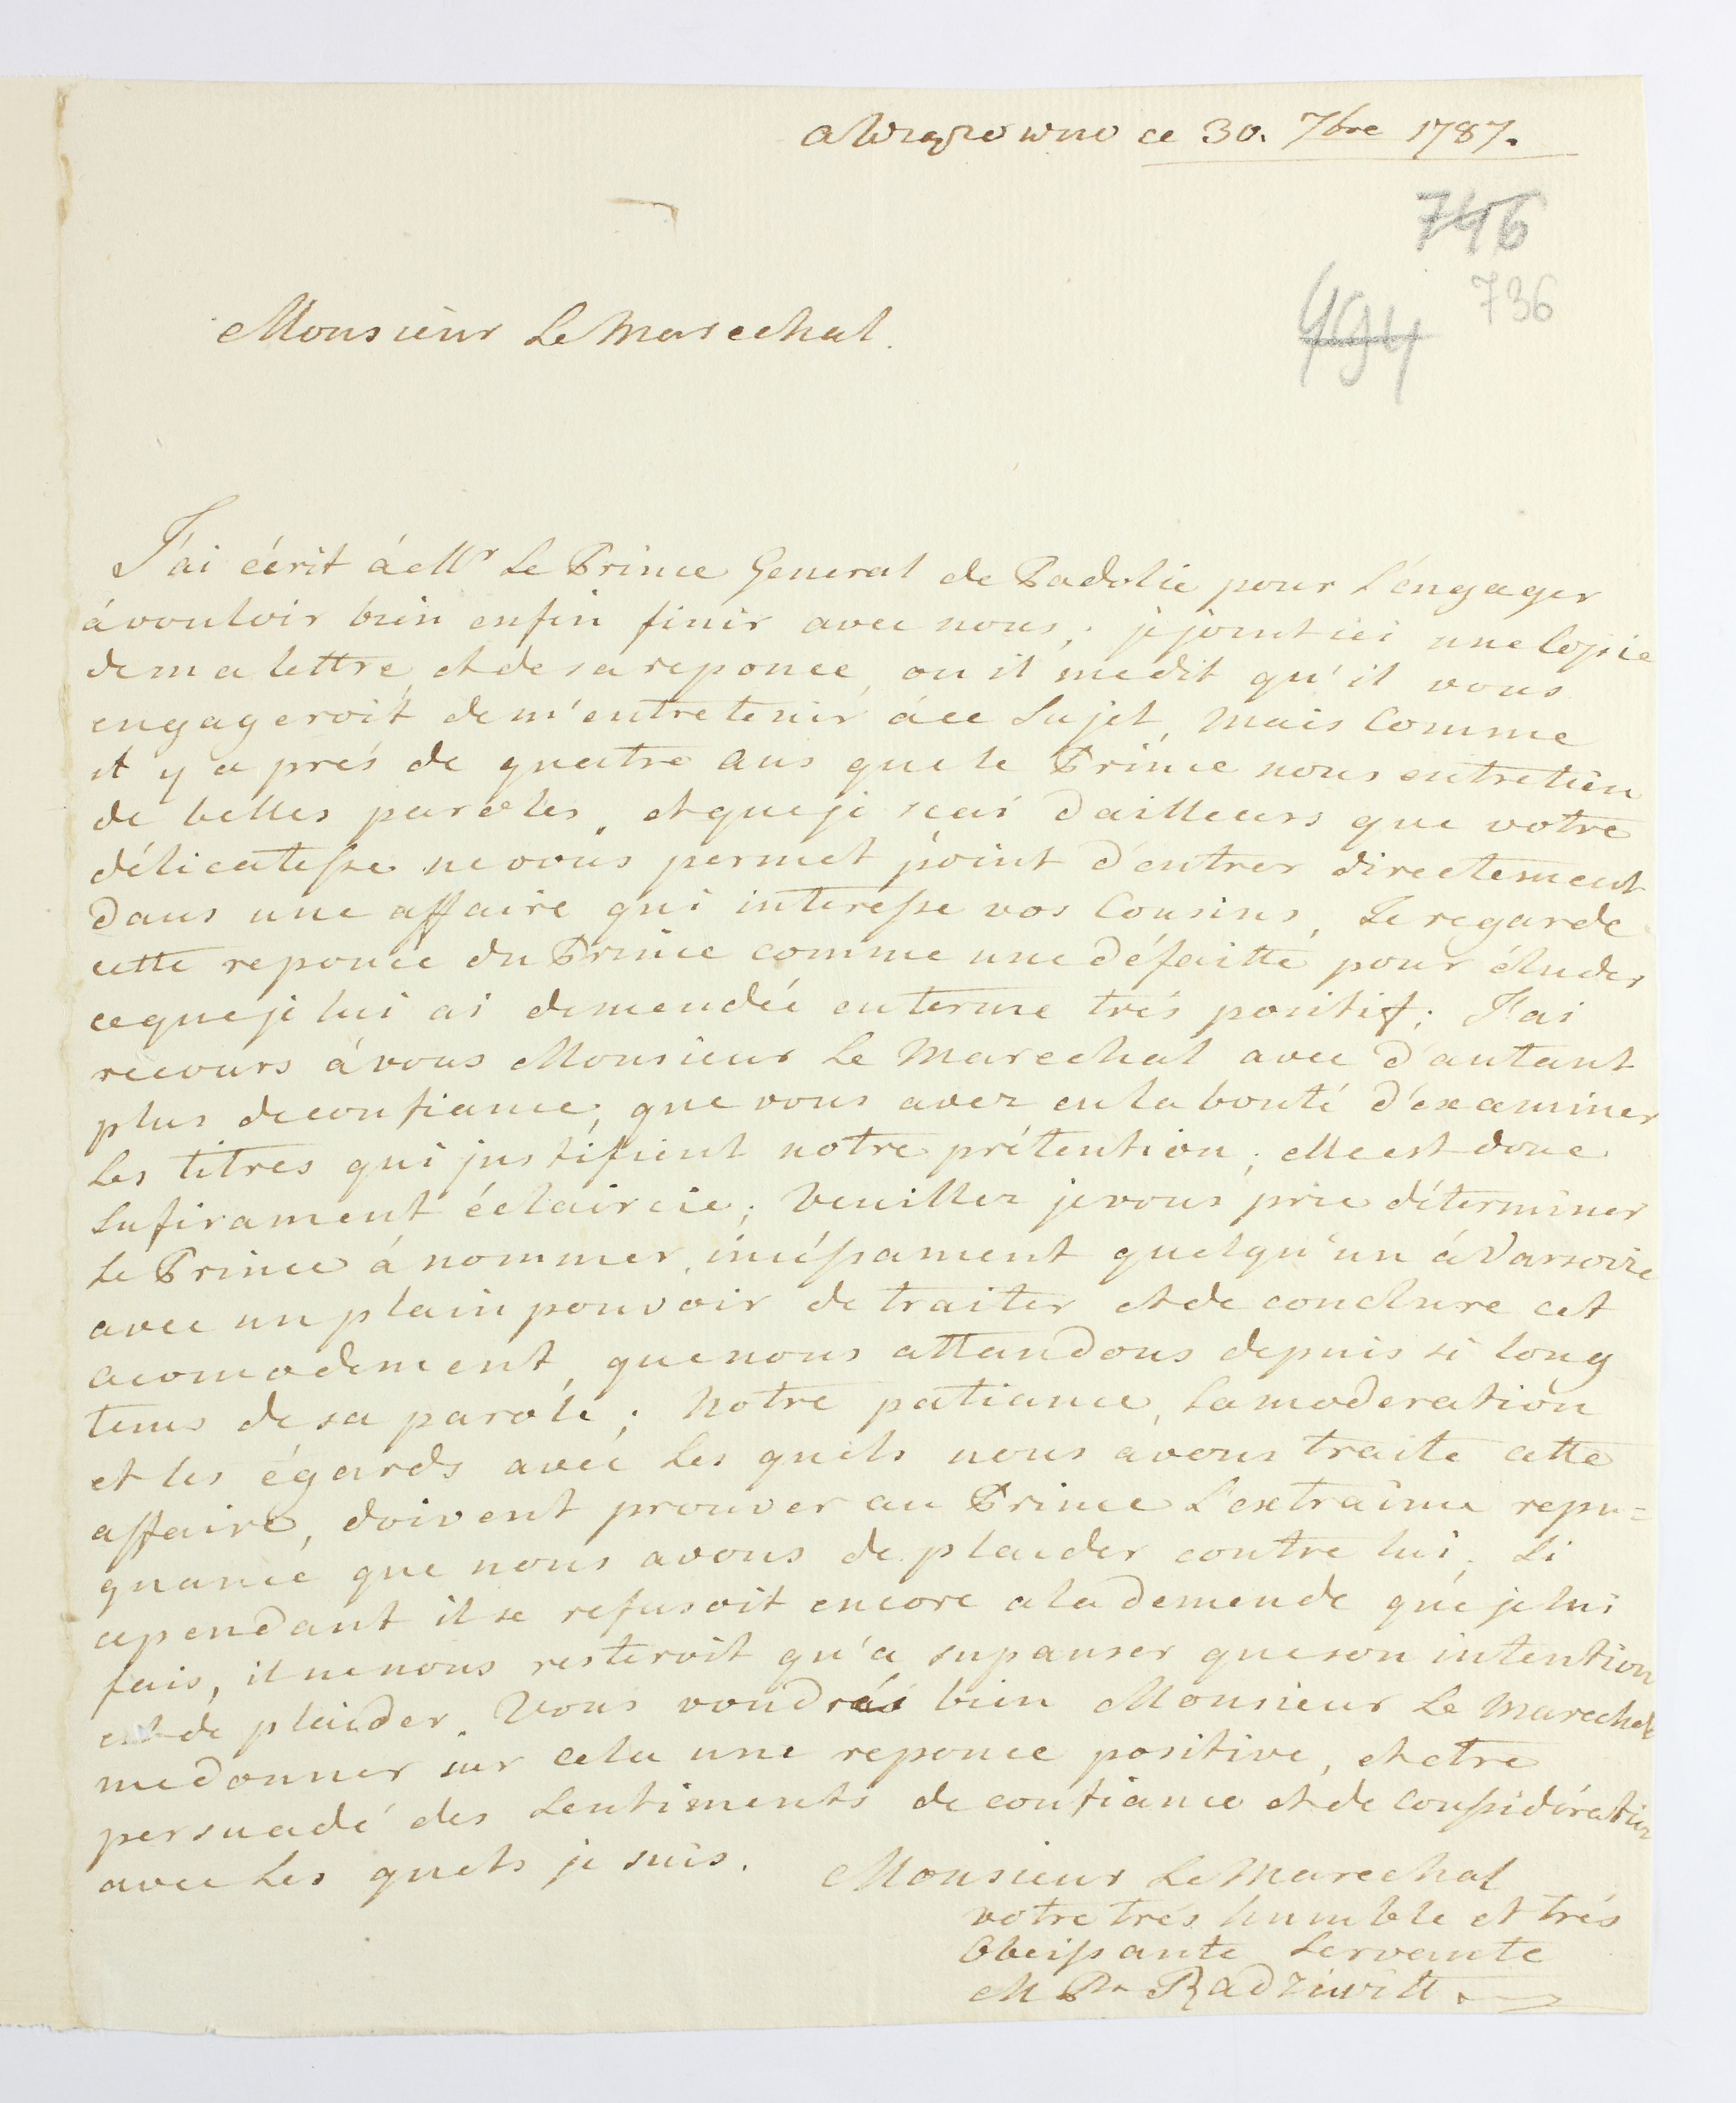 a Węgrowno ce 30. 7bre 1787.
746
736
494
Monsieur Le Marechal.
J'ai écrit á Mr Le Prince General de Padolie pour L'éngager
á vouloir bien enfin finir avec nous; je joint ici une Copie
de ma lettre, et de sa reponce, ou il me dit qu'il vous
engageroit de m'entretenir á ce Sujet, Mais Comme
il y a prés de quatre Ans que le Prince nous entretien
de belles paroles, et que je scai dailleurs que votre
délicatesse ne vous permet point d'entrer directement
dans une affaire qui interesse vos Cousins, Je regarde
cette reponce du Prince comme une défaitte pour éluder
ce que je lui ai demendée en terme trés positif; J'ai
recours á vous Monsieur Le Marechal avec d'autant
plus de confiance, que vous avez eu la bonté d'examiner
Les titres qui justifient notre prétention; elle est donc
Sufirament éclaircie; Veuillez je vous prie déterminer
Le Prince á nommer incéssament quelqu'un á Varsovie
avec un plain pouvoir de traiter et de conclure cet
acomodement, que nous attandons depuis si long
tems de sa parole; Notre patiance, La moderation
et les égards avec Les quels nous avons traite cette
affaire, doivent prouver au Prince L'extraime repu=
gnance que nous avons de plaider contre lui. Si
cependant il se refusoit encore a la demende que je lui
fais, il ne nous resteroit qu'a supanser que son intention
est de plaider. Vous voudrés bien Monsieur Le Marechal
me donner sur cela une reponce positive, et etre
persuadé des Sentiments de confiance et de Considération
avec Les quels je suis.
Monsieur Le Marechal
votre trés humble et trés
Obeissante Servante
M Pss Radziwill